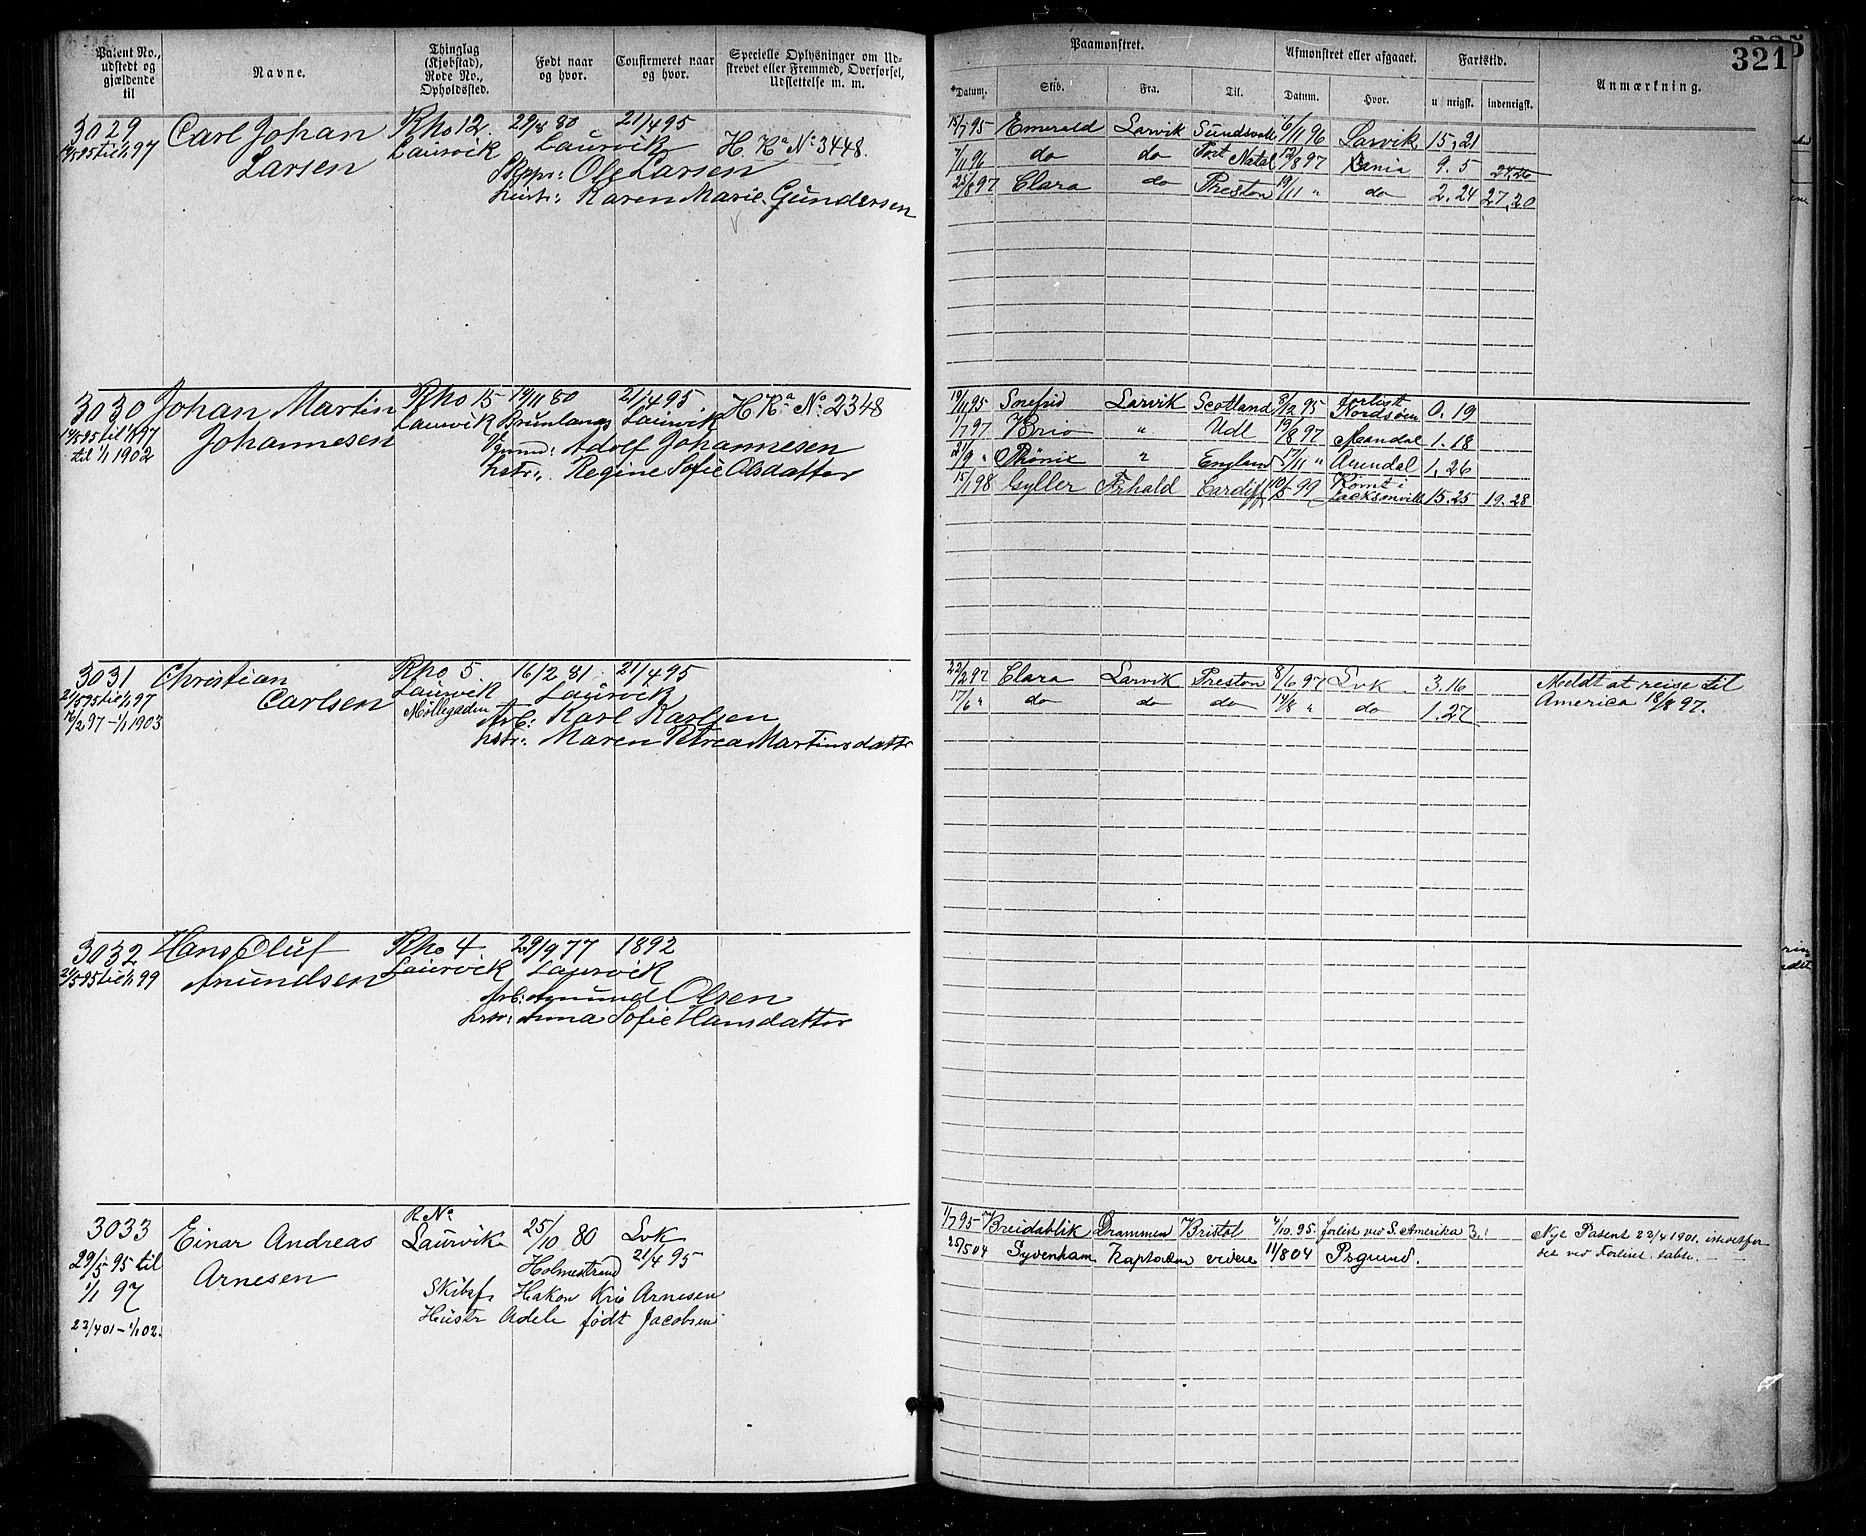 Patent No., udstedt og gjældende til
Navne.
Thinglag (Kjøbstad), Rode No., Opholdssted.
Født naar og hvor.
Confirmeret naar og hvor.
Specielle Oplysninger om Udskrevet eller Fremmed, Overførsel, Udslettelse m. m.
Paamønstret.
Afmønstret eller afgaaet.
Fartstid.
Anmærkning.
321
Datum. Skib. Fra. Til. Datum. Hvor. udenrigsk. indenrigsk.
3029 Carl Johan Larsen
til 1/1 97
Rho 12 Laurvik
29/8 80 21/4 95
Laurvik
H. Ka No 3448.
Skppr: Ole Larsen
hustr: Karen Marie Gundersen
15/7 95 Emerald Larvik Sundsvall 6/11 96 Larvik 15,21
7/11 96 do do Port Natal 12/8 97 9.5
25/8 97 Clara do Preston 19/11 " do 2.24 27,20
3030 Johan Martin Johannesen
til 1/1 1902
Rho 15 Laurvik
19/11 80 Brunlanes
21/4 95 Laurvik
H Ka No 2348
Adolf Johannesen
hstr: Regine Sofie Olsdatter
19/11 95 Snefrid Larvik Scotland 8/12 95 forlist Nordsøen 0.19
1/7 97 Brio " Udl 19/8 97 Mandal 1.18
21/9 " Phönix " England 17/11 " Arendal 1,26
15/1 98 Gyller Frhald Cardiff 10/5 99 Rømt i Jacksonville 15.25 19.28
3031 Christian Carlsen
21/5 95 til 1/1 97
16/2 97 - 1/1 1903
Rho 5 Laurvik Møllegaden
16/2 81 21/4 95
Laurvik
Arb: Karl Karlsen
hstr: Maren Petrea Martinsdattr
22/2 97 Clara Larvik Preston 8/6 97 Lvk 3.16
17/6 " do do do 14/8 " do 1.27
Meldt at reise til
America 18/8 97.
3032 Hans Oluf Amundsen
21/5 95 til 1/1 99
Rho 4 Laurvik
29/9 77 1892
Laurvik
Arb: Amund Olsen
hstr: Anna Sofie Hansdatter
3033 Einar Andreas Arnesen
29/5 95 til
1/1 97
22/4 01 - 1/1 02.
R No
Laurvik
25/10 80 Holmestrand
Lvk 21/4 95
Skibsf. Hakon Kris Arnesen
Hustr Adele født Jacobsen
1/7 95 Breidablik Drammen Bristol 4/10 95. forlist ved S. Amerika 3.
Nyt Patent 22/4 1901.
det ved Forliset tabte.
25/5 04 Syvenham Kapstaden videre 11/8 04 Psgrund.